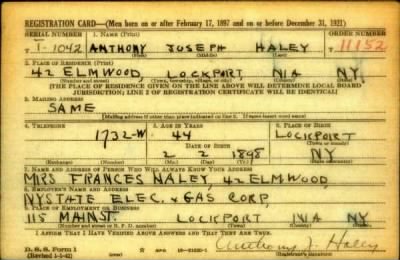 REGISTRATION CARD—(Men born on or after February 17, 1897 and on or before December 31, 1921)
SERIAL NUMBER 1. NAME (Print) ORDER NUMBER
T-1042 ANTHONY JOSEPH HALEY 11152
(First) (Middle) (Last)
2. PLACE OF RESIDENCE (Print)
42 ELMWOOD LOCKPORT NIA NY
(Number and street) (Town, township, village, or city) (County) (State)
[THE PLACE OF RESIDENCE GIVEN ON THE LINE ABOVE WILL DETERMINE LOCAL BOARD
JURISDICTION; LINE 2 OF REGISTRATION CERTIFICATE WILL BE IDENTICAL]
3. MAILING ADDRESS
SAME
[Mailing address if other than place indicated on line 2. If same insert word same]
4. TELEPHONE 5. AGE IN YEARS 6. PLACE OF BIRTH
1732-W 44 LOCKPORT
DATE OF BIRTH (Town or county)
2 2 1898 NY
(Exchange) (Number) (Mo.) (Day) (Yr.) (State or country)
7. NAME AND ADDRESS OF PERSON WHO WILL ALWAYS KNOW YOUR ADDRESS
MRS FRANCES HALEY, 42 ELMWOOD
8. EMPLOYER'S NAME AND ADDRESS
NYSTATE ELEC. & GAS CORP,
9. PLACE OF EMPLOYMENT OR BUSINESS
115 MAIN ST. LOCKPORT NIA NY
(Number and street or R. F. D. number) (Town) (County) (State)
I AFFIRM THAT I HAVE VERIFIED ABOVE ANSWERS AND THAT THEY ARE TRUE.
D. S. S. Form 1
(Revised 1-5-42)
Anthony J. Haley
(Registrant's signature)